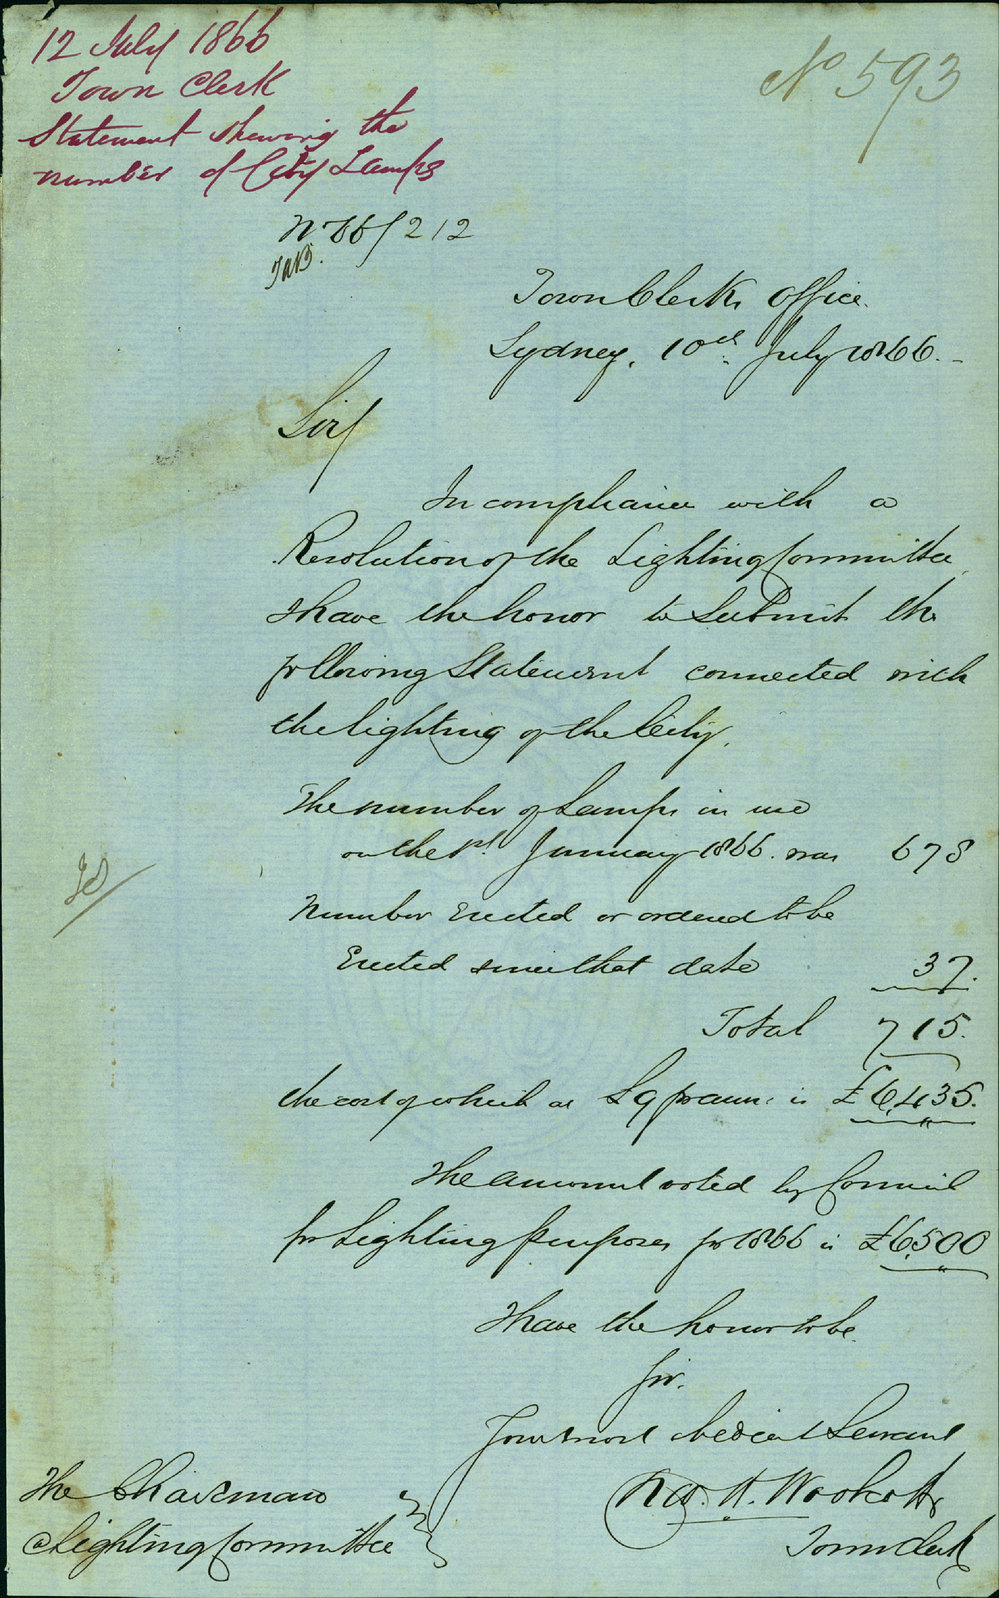 12 July 1866
No 593
Town Clerk
Statement shewing the
number of City Lamps
66/212
Town Clerks Office.
Sydney, 10th July 1866.
Sir/
In compliance with a
Resolution of the Lighting Committee
I have the honor to Submit the
following Statement connected with
the lighting of the City.
The number of Lamps in use
on the 1st January 1866. was 678
Number Erected or ordered to be
Erected since that date 37.
Total 715.
the cost of which at £9 pr ann: is £6,435.
The amount voted by Council
for Lighting purposes for 1866 is £6,500
I have the honor to be
Sir.
Your most obedient Servant
Chas. H. Woolcott
Town Clerk
The Chairman
Lighting Committee